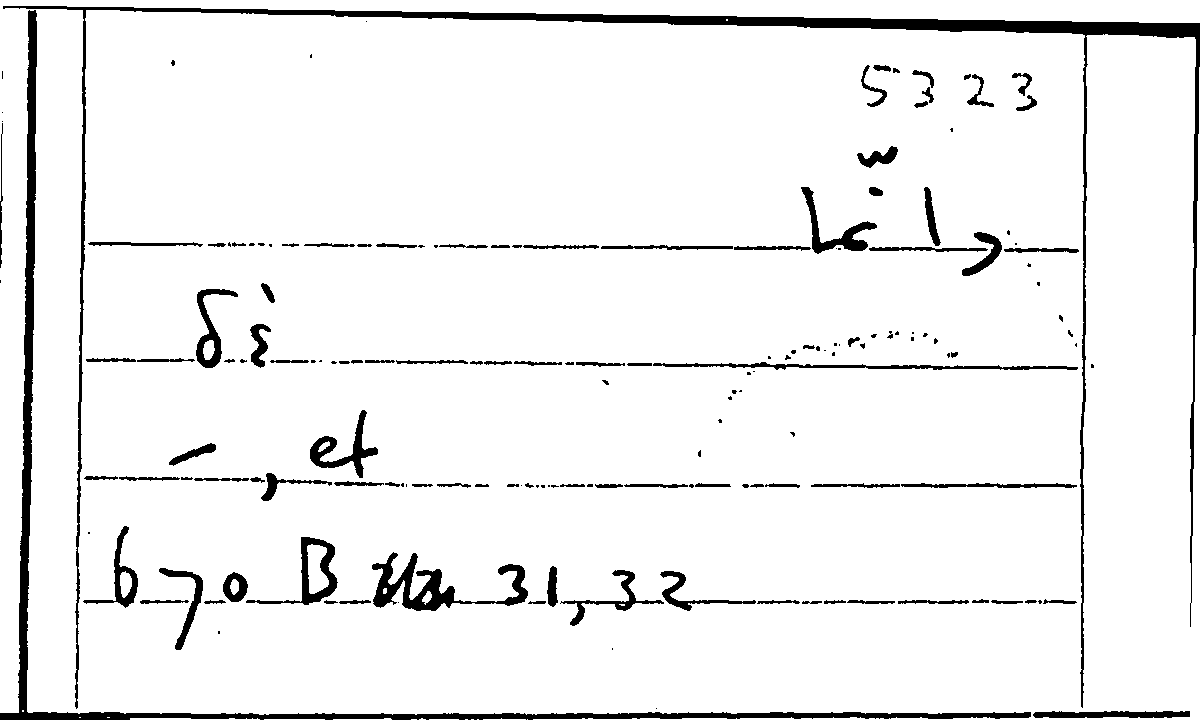 5323
وامَّا
δὲ
– , et
670 B 31, 32